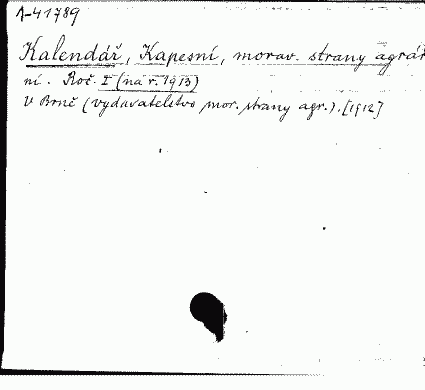 A-41789
Kalendář, Kapesní, morav. strany agrár
ní. Roč. I (na r. 1913)
V Brně (vydavatelstvo mor. strany agr.). [1912]